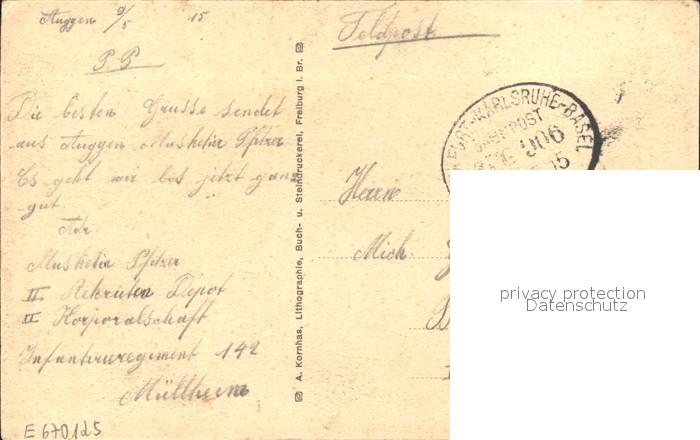 Auggen 9/5 15
Feldpost
P P
Die besten Grüsse sendet
aus Auggen Musketier Pfitzer
Es geht mir bis jetzt ganz
gut.
Adr
Musketier Pfitzer
II Rekruten Depot
II Korporalschaft
Infanterieregiment 142
Müllheim
E 670125
A. Kornhas, Lithographie, Buch- u. Steindruckerei, Freiburg i. Br.
KARLSRUHE-BASEL
BAHNPOST
906
15
Herrn
Mich
privacy protection
Datenschutz